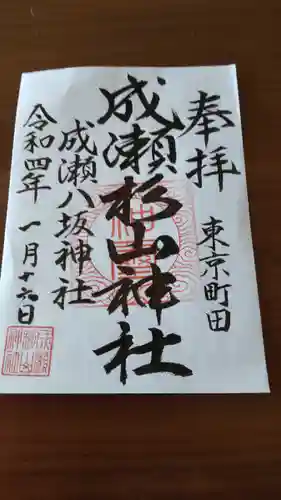 奉拝
東京町田
成瀬杉山神社
成瀬八坂神社
令和四年
一月十六日